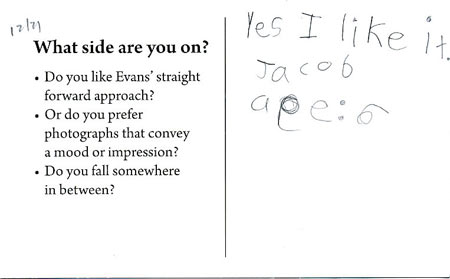 12/21
What side are you on?
• Do you like Evans' straight
forward approach?
• Or do you prefer
photographs that convey
a mood or impression?
• Do you fall somewhere
in between?
Yes I like it.
Jacob
ape:6